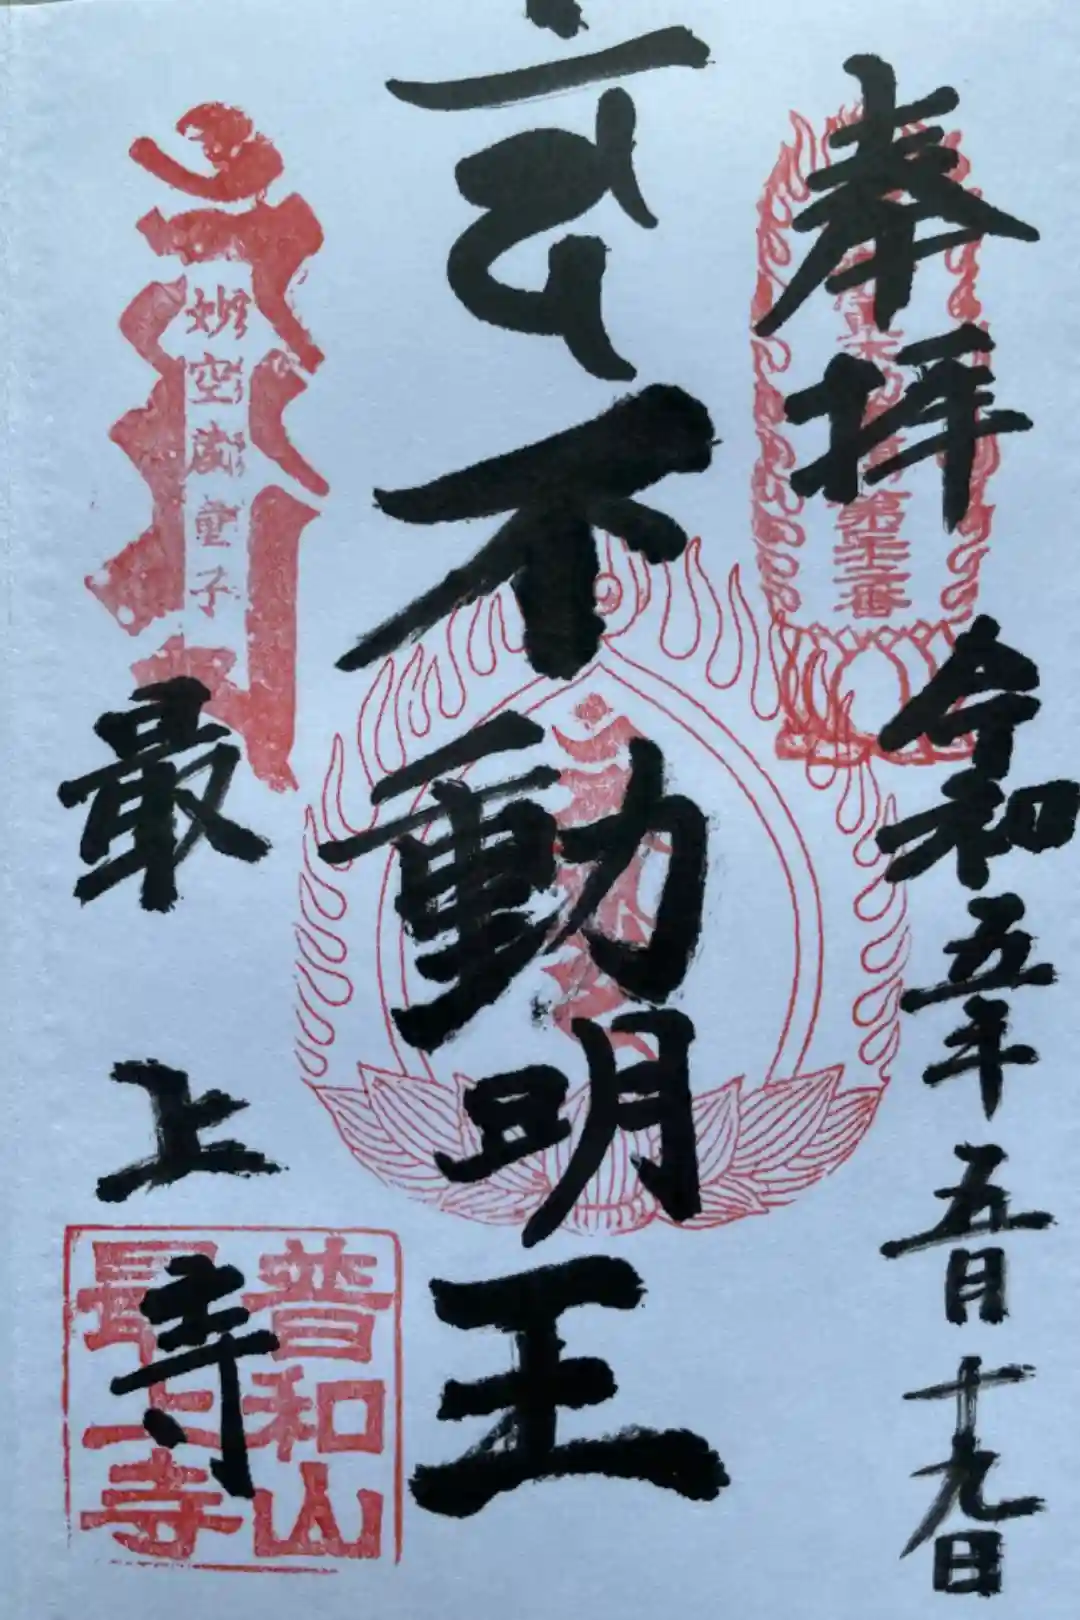 奉拝
令和五年五月十九日
不動明王
妙空蔵童子
最上寺
普和山
最上寺